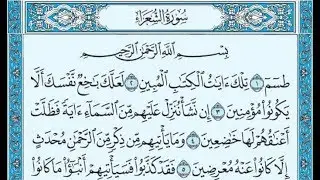 سُورَةُ الشُّعَرَاءِ
بِسْمِ اللَّهِ الرَّحْمَٰنِ الرَّحِيمِ
طسٓمٓ ١ تِلْكَ ءَايَٰتُ ٱلْكِتَٰبِ ٱلْمُبِينِ ٢ لَعَلَّكَ بَٰخِعٌ نَّفْسَكَ أَلَّا
يَكُونُوا۟ مُؤْمِنِينَ ٣ إِن نَّشَأْ نُنَزِّلْ عَلَيْهِم مِّنَ ٱلسَّمَآءِ ءَايَةً فَظَلَّتْ
أَعْنَٰقُهُمْ لَهَا خَٰضِعِينَ ٤ وَمَا يَأْتِيهِم مِّن ذِكْرٍ مِّنَ ٱلرَّحْمَٰنِ مُحْدَثٍ
إِلَّا كَانُوا۟ عَنْهُ مُعْرِضِينَ ٥ فَقَدْ كَذَّبُوا۟ فَسَيَأْتِيهِمْ أَنۢبَٰٓؤُا۟ مَا كَانُوا۟